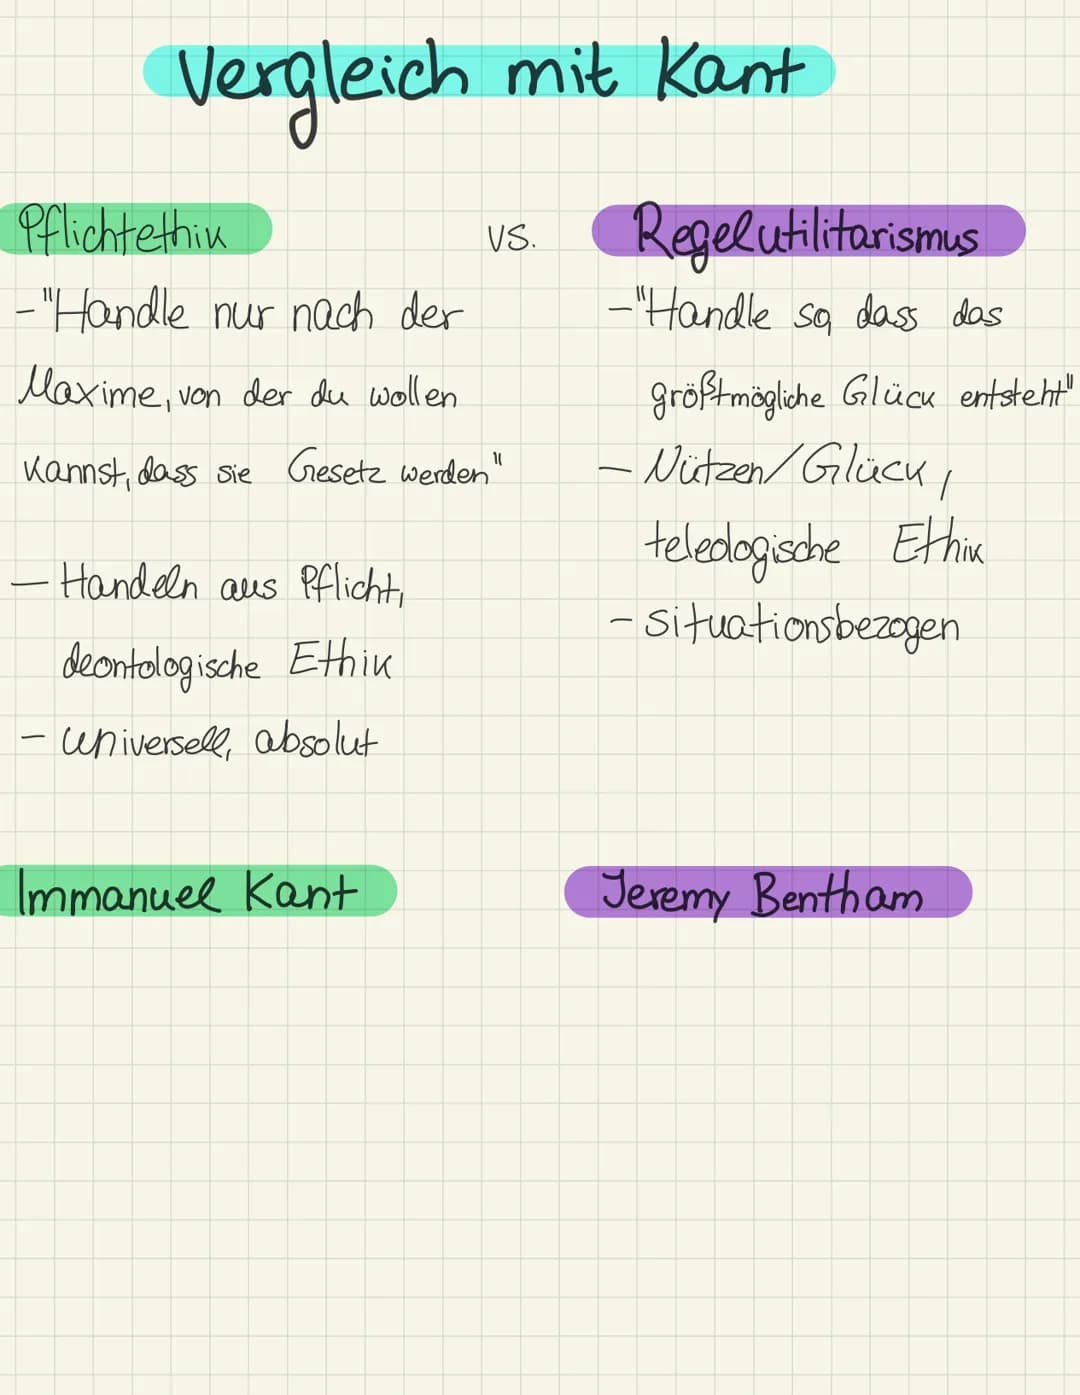 Vergleich mit Kant
Pflichtethik
vs.
Regelutilitarismus
-"Handle nur nach der
Maxime, von der du wollen
kannst, dass sie Gesetz werden"
- Handeln aus Pflicht,
deontologische Ethik
- universell, absolut
-"Handle so, dass das
größtmögliche Glück entsteht"
- Nützen/Glück,
teleologische Ethik
- situationsbezogen
Immanuel Kant
Jeremy Bentham